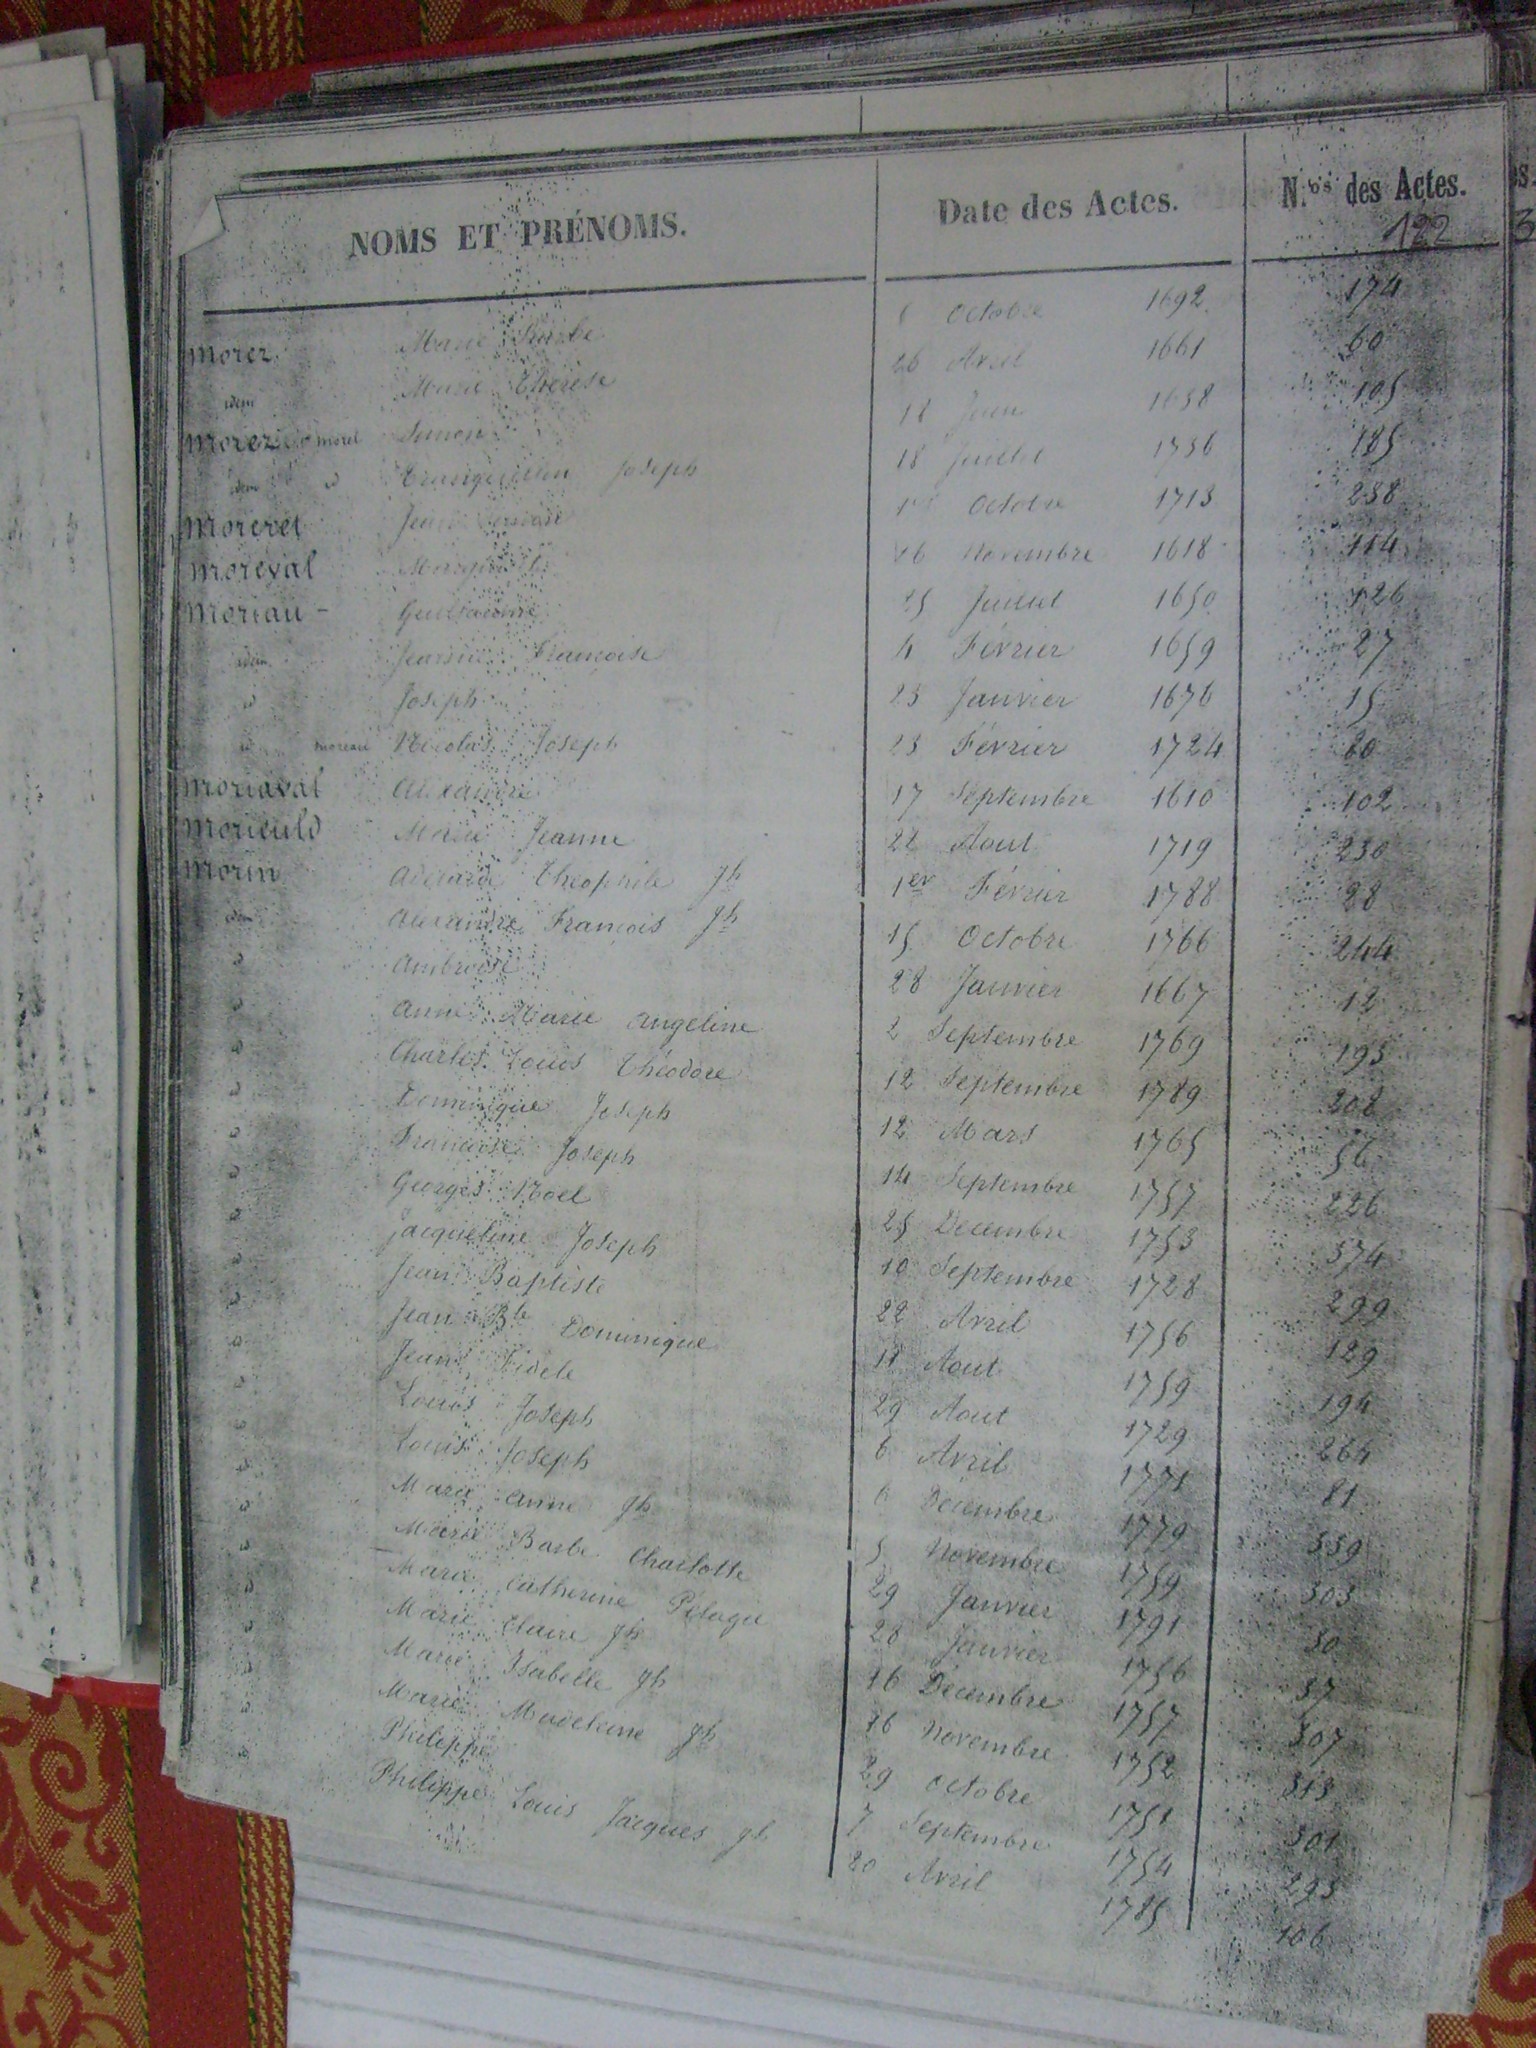 NOMS ET PRÉNOMS. Date des Actes. N.os des Actes.
122
Morez Marie Barbe 6 Octobre 1692 174
idem Marie Thérèse 26 Avril 1661 60
Morez ou Morel Simon 18 Juin 1658 105
idem id Tranquillin Joseph 18 Juillet 1736 185
Moreret Jean 1er Octobre 1713 238
Moreval 16 Novembre 1618 114
Moriau - Guillaume 25 Juillet 1650 126
idem Jeanne Françoise 4 Février 1659 27
id Joseph 23 Janvier 1676 15
id moreau Nicolas Joseph 23 Février 1724 60
Moriaval Alexandre 17 Septembre 1610 102
Morieuld Marie Jeanne 22 Aout 1719 230
Morin Adélaïde Théophile Jh 1er Février 1788 28
idem Alexandre François Jh 15 Octobre 1766 244
id Ambroise 28 Janvier 1667 12
id Anne Marie Angeline 2 Septembre 1769 193
id Charles Louis Théodore 12 Septembre 1789 208
id Dominique Joseph 12 Mars 1765 56
id Françoise Joseph 14 Septembre 1757 226
id Georges Noel 25 Décembre 1753 374
id Jacqueline Joseph 10 Septembre 1728 299
id Jean Baptiste 22 Avril 1756 129
id Jean Bte Dominique 11 Aout 1759 194
id Jean Fidele 29 Aout 1729 264
id Louis Joseph 6 Avril 1771 81
id Louis Joseph 6 Décembre 1779 339
id Marie Anne Jh 5 Novembre 1759 303
id Marie Barbe Charlotte 29 Janvier 1791 30
id Marie Catherine Pélagie 28 Janvier 1756 37
id Marie Claire Jh 16 Décembre 1757 307
id Marie Isabelle Jh 16 Novembre 1752 313
id Marie Madeleine Jh 29 Octobre 1751 301
id Philippe 7 Septembre 1754 293
id Philippe Louis Jacques Jh 20 Avril 1785 106